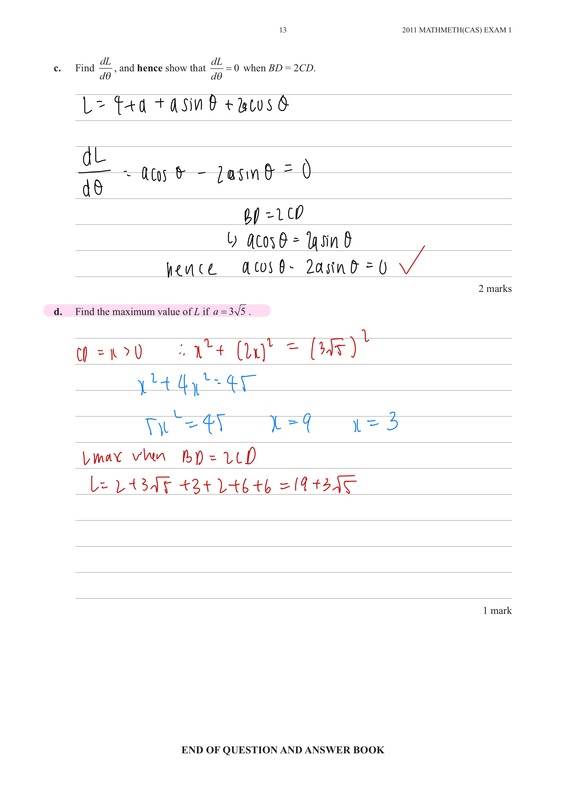 13 2011 MATHMETH(CAS) EXAM 1
c. Find dL/dθ, and hence show that dL/dθ = 0 when BD = 2CD.
L = 4+a + a sin θ + 2a cos θ
dL/dθ = a cos θ - 2a sin θ = 0
BD = 2CD
↳ a cos θ = 2a sin θ
hence a cos θ - 2a sin θ = 0 ✓
2 marks
d. Find the maximum value of L if a = 3√5 .
CD = x > 0 ∴ x² + (2x)² = (3√5)²
x² + 4x² = 45
5x² = 45 x = 9 x = 3
L max when BD = 2CD
L = 2 + 3√5 + 3 + 2 + 6 + 6 = 19 + 3√5
1 mark
END OF QUESTION AND ANSWER BOOK